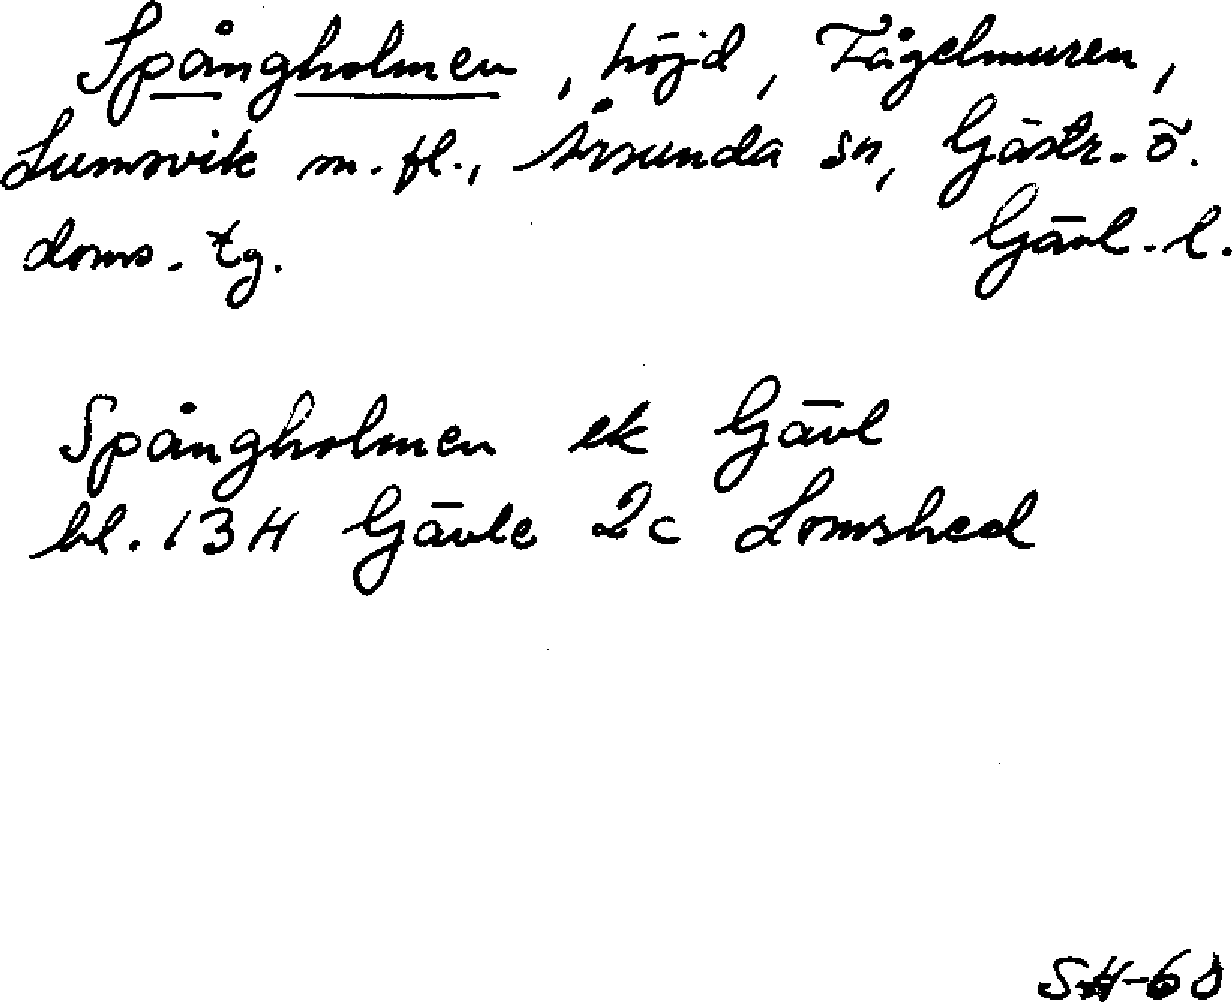 Spångholmen, höjd, Fågelmuren,
Lumsvik m.fl., Årsunda sn, Gästr. ö.
doms. tg. Gävl. l.
Spångholmen ek Gävl
bl. 13H Gävle 2c Lomshed
SH-68